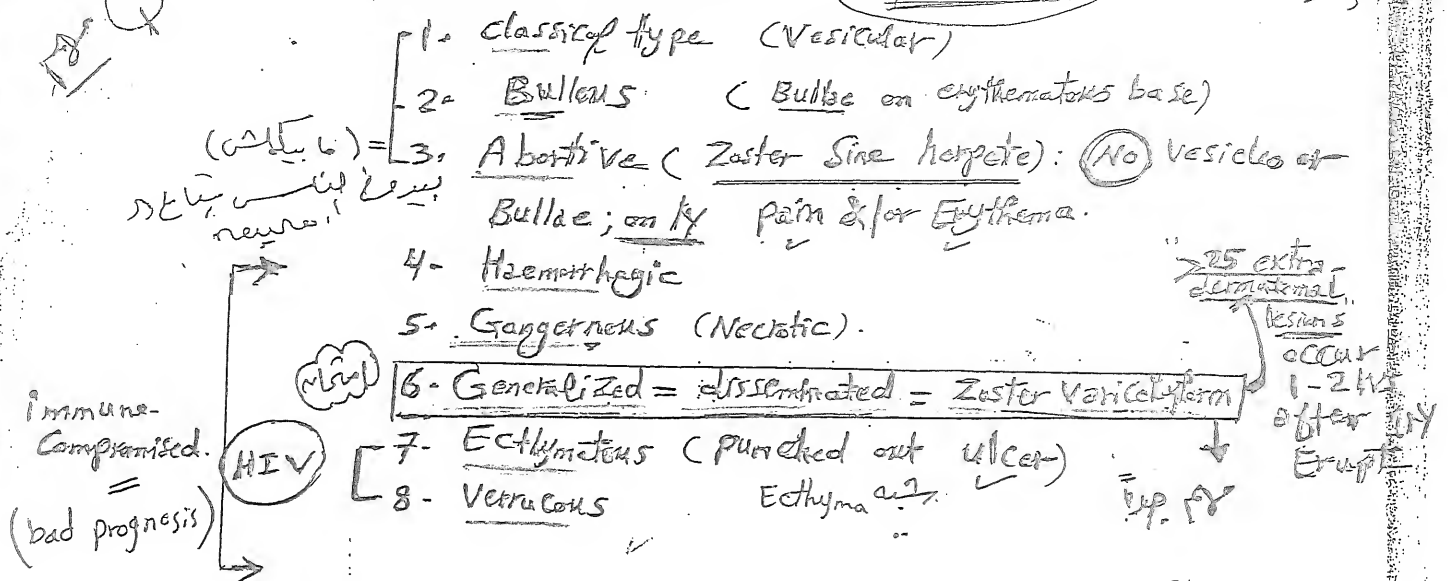 1- Classical type (Vesicular)
2- Bullous (Bullae on erythematous base)
3. Abortive (Zoster Sine herpete): (No) Vesicles or
Bullae; only pain &/or Erythema.
neural
4- Haemorrhagic
5. Gangernous (Necrotic).
امتحان
6- Generalized = disseminated = Zoster Varicelyform
>25 extra-
dermatomal
lesions
occur
1-2 wks
after
Erupt
immune-
Compromised.
=
(bad prognosis)
HIV
7- Ecthymatous (punched out ulcer)
Ecthyma
8- Verrucous